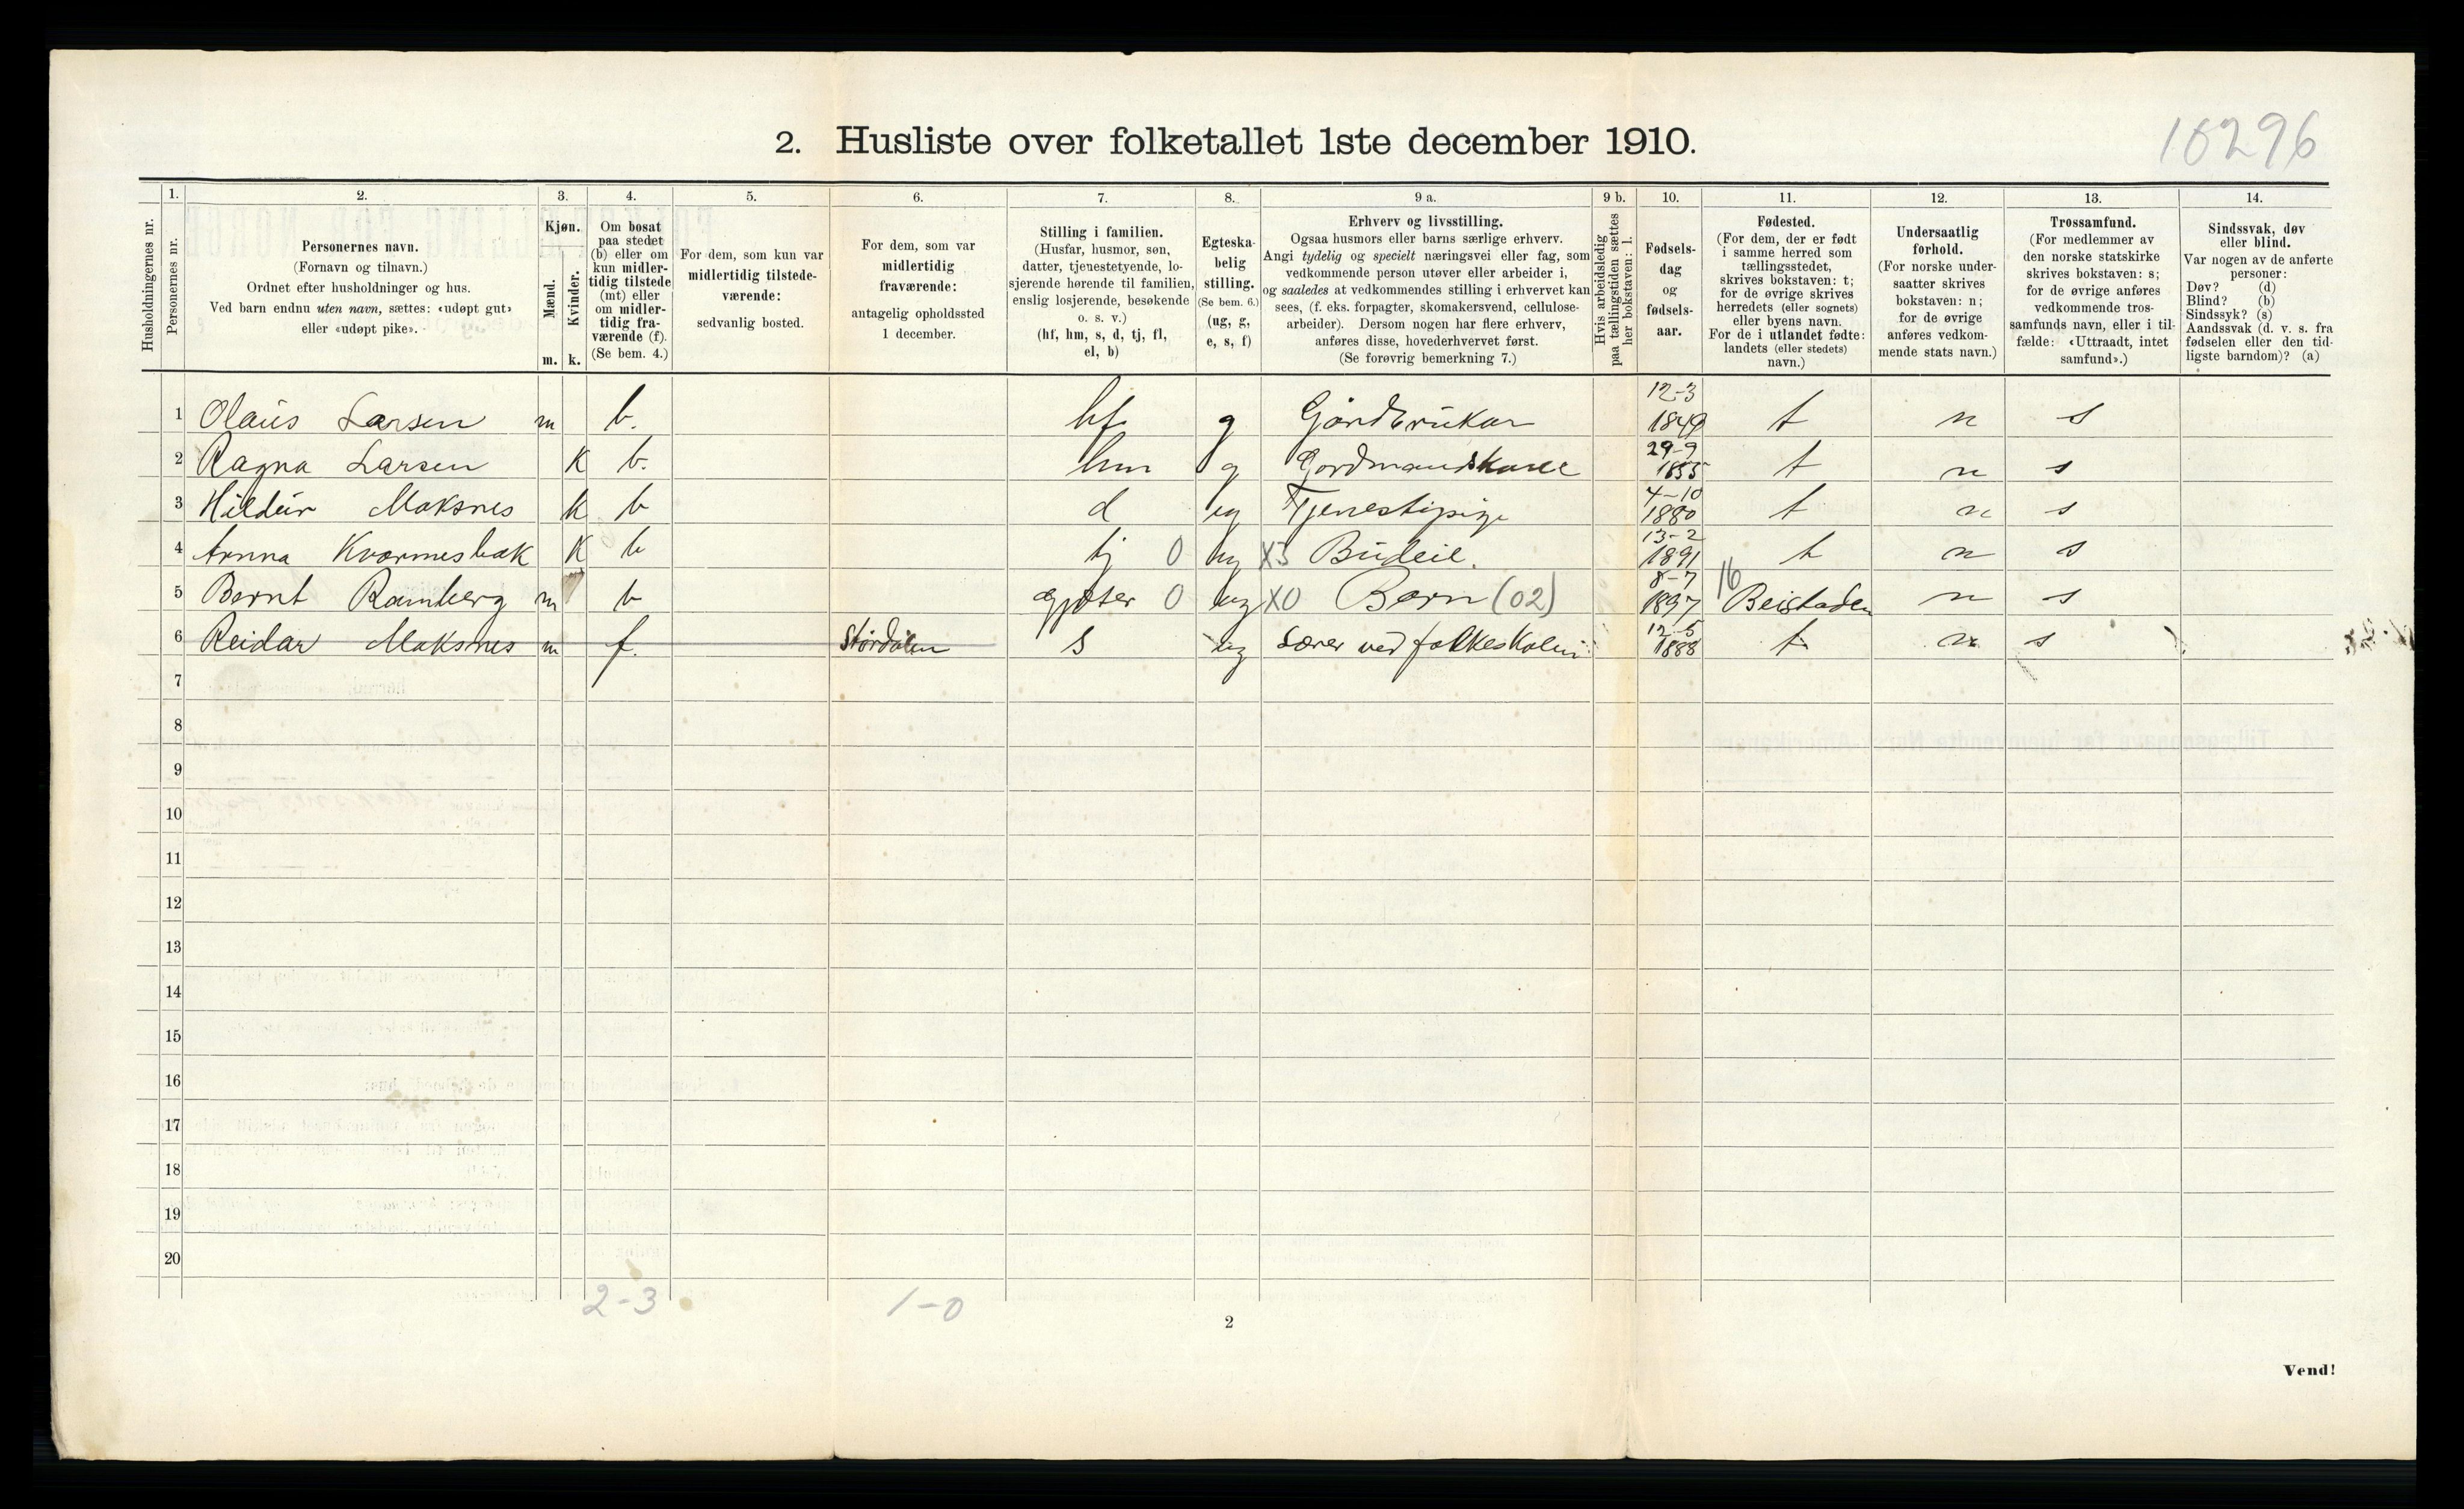 10296
2. Husliste over folketallet 1ste december 1910.
Husholdningernes nr.
1.
Personernes nr.
2.
Personernes navn.
(Fornavn og tilnavn.)
Ordnet efter husholdninger og hus.
Ved barn endnu uten navn, sættes: «udøpt gut»
eller «udøpt pike».
3.
Kjøn.
Mænd.
Kvinder.
m. k.
4.
Om bosat
paa stedet
(b) eller om
kun midler-
tidig tilstede
(mt) eller
om midler-
tidig fra-
værende (f).
(Se bem. 4.)
5.
For dem, som kun var
midlertidig tilstede-
værende:
sedvanlig bosted.
6.
For dem, som var
midlertidig
fraværende:
antagelig opholdssted
1 december.
7.
Stilling i familien.
(Husfar, husmor, søn,
datter, tjenestetyende, lo-
sjerende hørende til familien,
enslig losjerende, besøkende
o. s. v.)
(hf, hm, s, d, tj, fl,
el, b)
8.
Egteska-
belig
stilling.
(Se bem. 6.)
(ug, g,
e, s, f)
9 a.
Erhverv og livsstilling.
Ogsaa husmors eller barns særlige erhverv.
Angi tydelig og specielt næringsvei eller fag, som
vedkommende person utøver eller arbeider i,
og saaledes at vedkommendes stilling i erhvervet kan
sees, (f. eks. forpagter, skomakersvend, cellulose-
arbeider). Dersom nogen har flere erhverv,
anføres disse, hovederhvervet først.
(Se forøvrig bemerkning 7.)
9 b.
Hvis arbeidsledig
paa tællingstiden sættes
her bokstaven: l.
10.
Fødsels-
dag
og
fødsels-
aar.
11.
Fødested.
(For dem, der er født
i samme herred som
tællingsstedet,
skrives bokstaven: t;
for de øvrige skrives
herredets (eller sognets)
eller byens navn.
For de i utlandet fødte:
landets (eller stedets)
navn.)
12.
Undersaatlig
forhold.
(For norske under-
saatter skrives
bokstaven: n;
for de øvrige
anføres vedkom-
mende stats navn.)
13.
Trossamfund.
(For medlemmer av
den norske statskirke
skrives bokstaven: s;
for de øvrige anføres
vedkommende tros-
samfunds navn, eller i til-
fælde: «Uttraadt, intet
samfund».)
14.
Sindssvak, døv
eller blind.
Var nogen av de anførte
personer:
Døv? (d)
Blind? (b)
Sindssyk? (s)
Aandssvak (d. v. s. fra
fødselen eller den tid-
ligste barndom)? (a)
1 Olaus Larsen m b. hf g Gårdbrukar 12-3 1849 t n s
2 Ragna Larsen K b. hm g Gordmandskone 29-9 1855 t n s
3 Hildur Moksnes K b d ug Tjenestipige 4-10 1880 t n s
4 Anna Kvormesbak K b tj 0 ug X3 Budeie. 13-2 1891 t n s
5 Bernt Ramberg m b gjæter 0 ug X0 Barn (02) 8-7 1897 16 Beistaden n s
6 Reidar Moksnes m f. Stördalen s ug Lærer ved folkeskolen 12-5 1888 t n s
7
8
9
10
11
12
13
14
15
16
17
18
19
20
2-3 1-0
2
Vend!